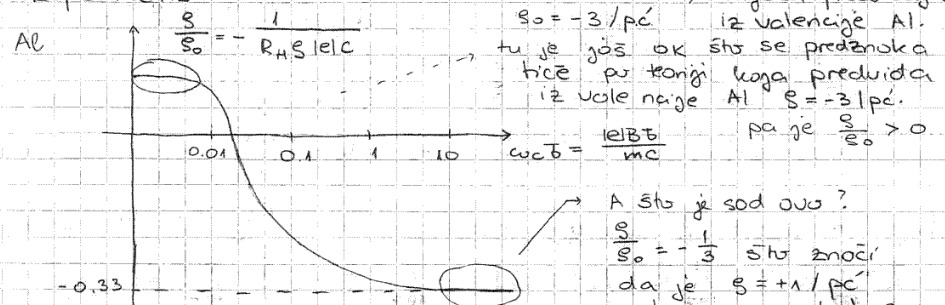 Al
ρ/ρ₀ = - 1/(R_H ρ |e| C)
ρ₀ = -3/p.ć. iz valencije Al.
tu je još ok što se predznaka
tiče po teoriji koga predviđa
iz vale ncije Al ρ = -3/pć.
pa je ρ/ρ₀ > 0
0.01 0.1 1 10
ω_c τ = |e|Bτ/mc
A što je sad ovo?
ρ/ρ₀ = -1/3 što znači
da je ρ = +1/pć
-0.33